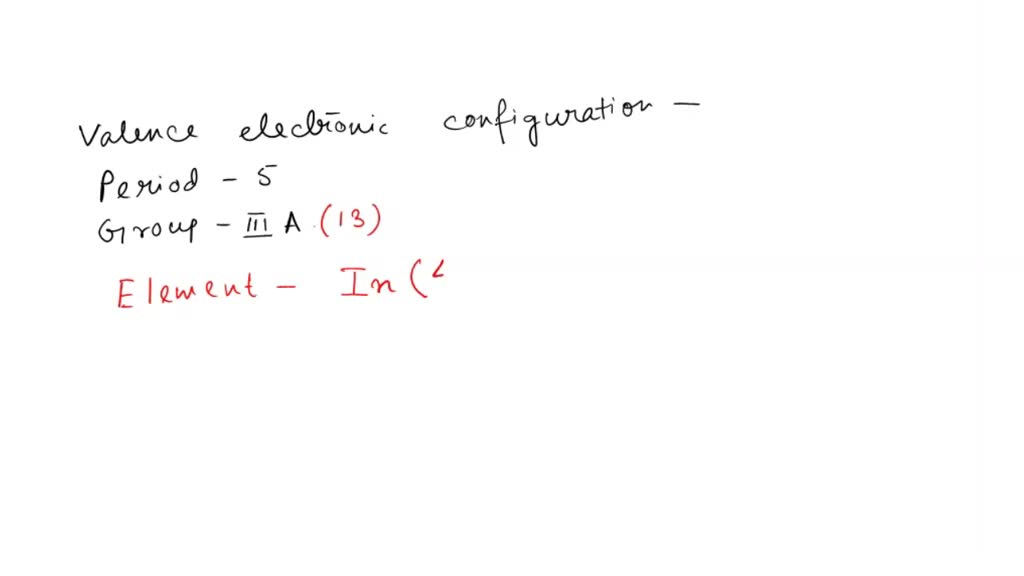 Valence electronic configuration -
Period - 5
Group - III A (13)
Element - In (4